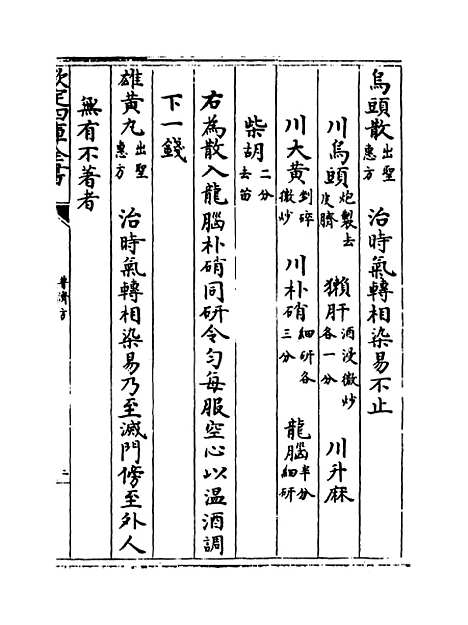 烏頭散出聖惠方 治時氣轉相染易不止
川烏頭炮製去皮臍 獺肝酒浸微炒各一分 川升麻
川大黄剉碎微炒 川朴硝細研各三分 龍腦半分細研
柴胡二分去苗
右為散入龍腦朴硝同研令匀每服空心以温酒調
下一錢
雄黄丸出聖惠方 治時氣轉相染易乃至滅門傍至外人
無有不著者
欽定四庫全書
普濟方
二